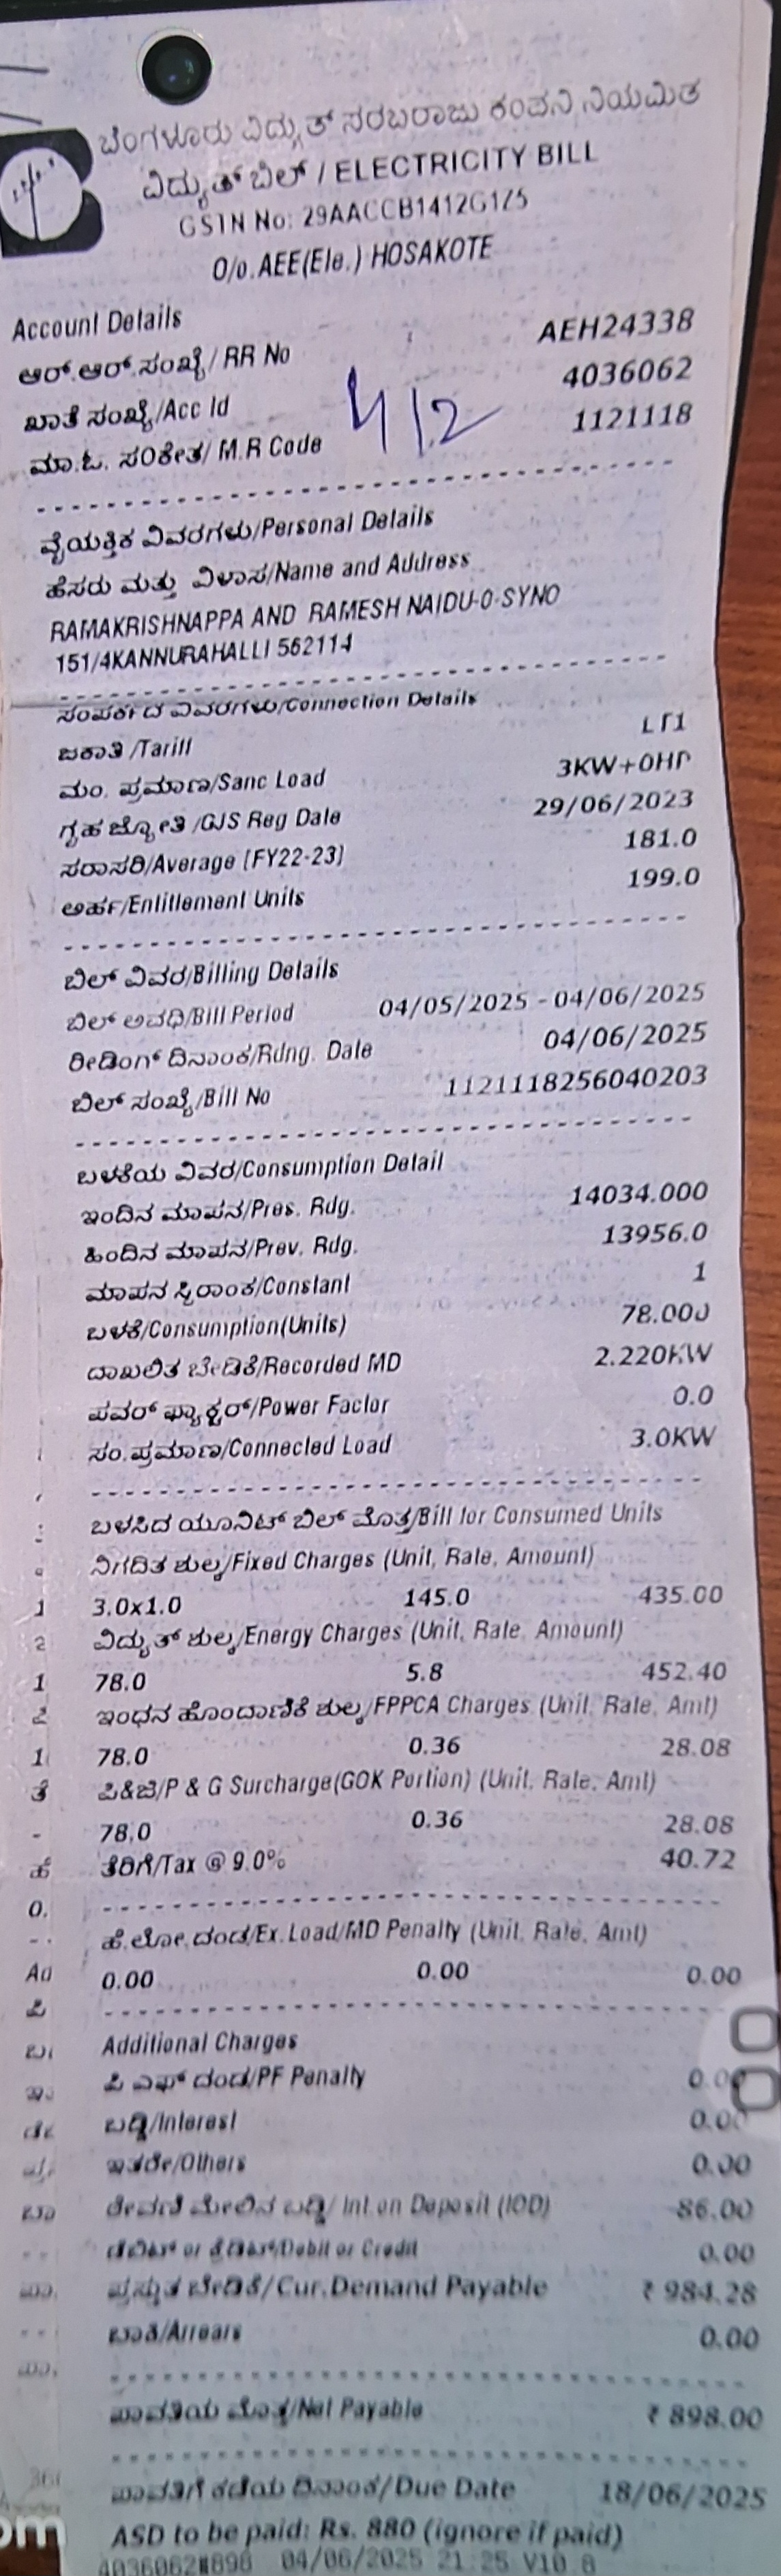 ಬೆಂಗಳೂರು ವಿದ್ಯುತ್ ಸರಬರಾಜು ಕಂಪನಿ ನಿಯಮಿತ
ವಿದ್ಯುತ್ ಬಿಲ್ / ELECTRICITY BILL
GSTIN No: 29AACCB1412G1Z5
O/o.AEE(Ele.) HOSAKOTE
Account Details
ಆರ್.ಆರ್.ಸಂಖ್ಯೆ/ RR No AEH24338
ಖಾತೆ ಸಂಖ್ಯೆ/Acc Id 4036062
ಮಾ.ಓ. ಸಂಕೇತ/ M.R Code 1121118
412
ವೈಯಕ್ತಿಕ ವಿವರಗಳು/Personal Details
ಹೆಸರು ಮತ್ತು ವಿಳಾಸ/Name and Address
RAMAKRISHNAPPA AND RAMESH NAIDU-0-SYNO
151/4KANNURAHALLI 562114
ಸಂಪರ್ಕದ ವಿವರಗಳು/Connection Details
ಜಕಾತಿ /Tariff LT1
ಮಂ. ಪ್ರಮಾಣ/Sanc Load 3KW+0HP
ಗೃಹ ಜ್ಯೋತಿ /GJS Reg Date 29/06/2023
ಸರಾಸರಿ/Average [FY22-23] 181.0
ಅರ್ಹ/Entitlement Units 199.0
ಬಿಲ್ ವಿವರ/Billing Details
ಬಿಲ್ ಅವಧಿ/Bill Period 04/05/2025 - 04/06/2025
ರೀಡಿಂಗ್ ದಿನಾಂಕ/Rdng. Date 04/06/2025
ಬಿಲ್ ಸಂಖ್ಯೆ/Bill No 1121118256040203
ಬಳಕೆಯ ವಿವರ/Consumption Detail
ಇಂದಿನ ಮಾಪನ/Pres. Rdg. 14034.000
ಹಿಂದಿನ ಮಾಪನ/Prev. Rdg. 13956.0
ಮಾಪನ ಸ್ಥಿರಾಂಕ/Constant 1
ಬಳಕೆ/Consumption(Units) 78.000
ದಾಖಲಿತ ಬೇಡಿಕೆ/Recorded MD 2.220KW
ಪವರ್ ಫ್ಯಾಕ್ಟರ್/Power Factor 0.0
ಸಂ.ಪ್ರಮಾಣ/Connected Load 3.0KW
ಬಳಸಿದ ಯೂನಿಟ್ ಬಿಲ್ ಮೊತ್ತ/Bill for Consumed Units
ನಿಗದಿತ ಶುಲ್ಕ/Fixed Charges (Unit, Rate, Amount)
3.0x1.0 145.0 435.00
ವಿದ್ಯುತ್ ಶುಲ್ಕ/Energy Charges (Unit, Rate, Amount)
78.0 5.8 452.40
ಇಂಧನ ಹೊಂದಾಣಿಕೆ ಶುಲ್ಕ/FPPCA Charges (Unit, Rate, Amt)
78.0 0.36 28.08
ಪಿ&ಜಿ/P & G Surcharge(GOK Portion) (Unit, Rate, Amt)
78.0 0.36 28.08
ತೆರಿಗೆ/Tax @ 9.0% 40.72
ಹೆ.ಲೋ.ದಂಡ/Ex.Load/MD Penalty (Unit, Rate, Amt)
0.00 0.00 0.00
Additional Charges
ಪಿ ಎಫ್ ದಂಡ/PF Penalty 0.00
ಬಡ್ಡಿ/Interest 0.00
ಇತರೇ/Others 0.00
ಠೇವಣಿ ಮೇಲಿನ ಬಡ್ಡಿ/ Int.on Deposit (IOD) -86.00
ಡೆಬಿಟ್ or ಕ್ರೆಡಿಟ್/Debit or Credit 0.00
ಪ್ರಸ್ತುತ ಬೇಡಿಕೆ/Cur.Demand Payable ₹ 984.28
ಬಾಕಿ/Arrears 0.00
ಪಾವತಿಯ ಮೊತ್ತ/Net Payable ₹ 898.00
ಪಾವತಿಗೆ ಕಡೆಯ ದಿನಾಂಕ/Due Date 18/06/2025
ASD to be paid: Rs. 880 (ignore if paid)
4036062#898 04/06/2025 21:25 V10.8